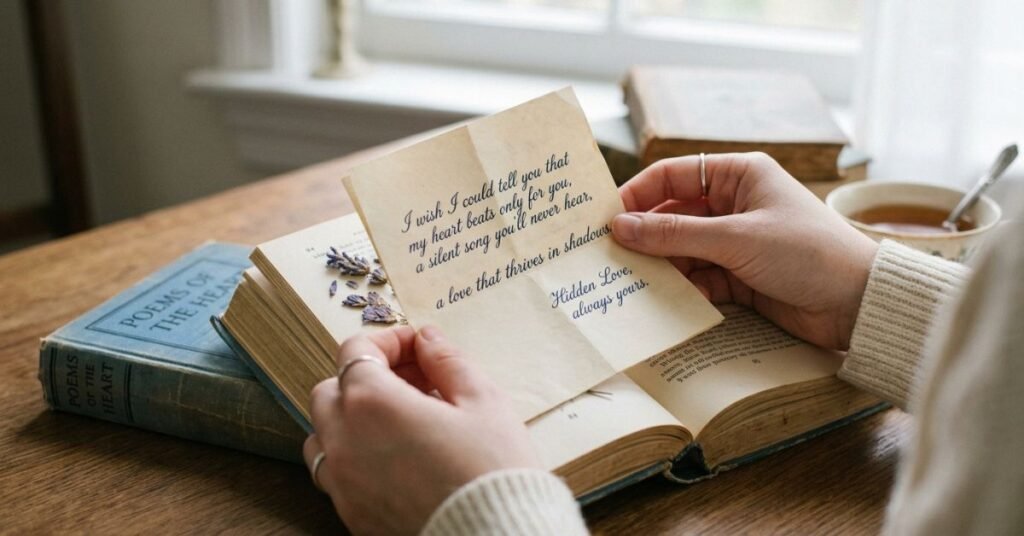 I wish I could tell you that
my heart beats only for you,
a silent song you'll never hear,
a love that thrives in shadows.
Hidden Love,
always yours.
POEMS OF
THE HEART
POEMS
OF THE
HEART